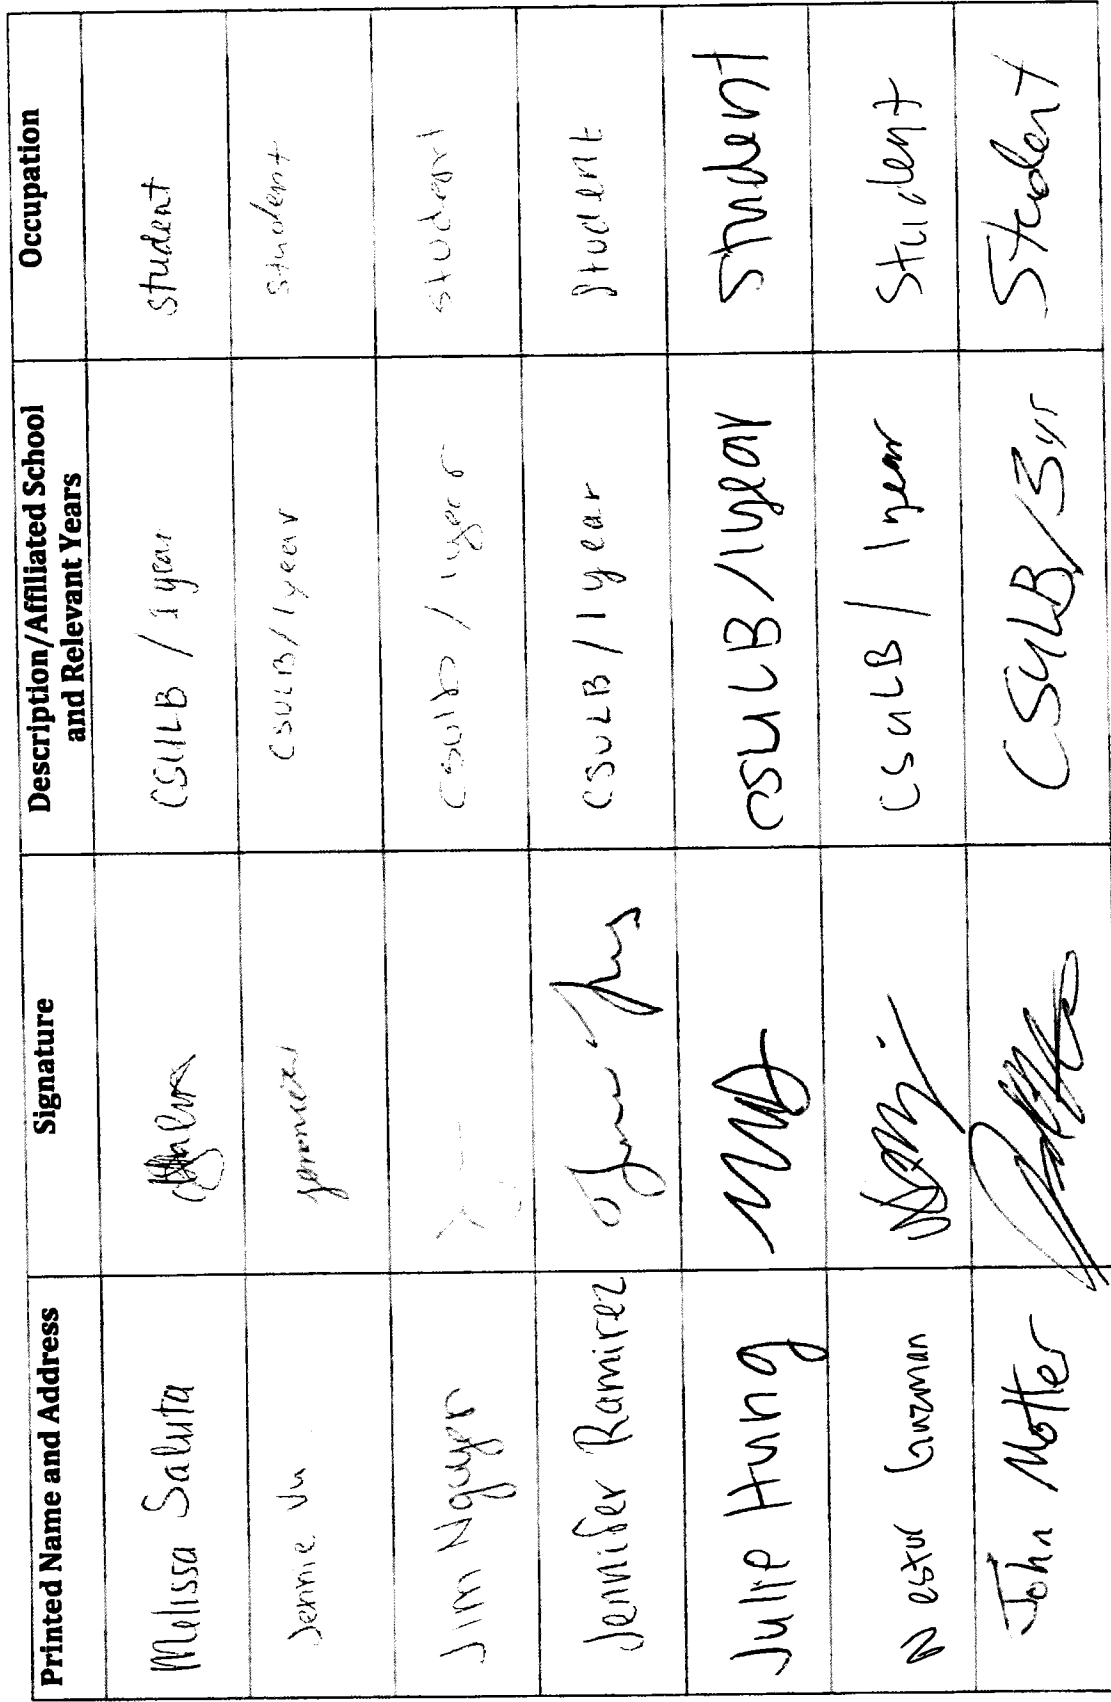 Printed Name and Address Signature Description/Affiliated School Occupation
and Relevant Years
Melissa Saluta CSULB / 1 year student
Jennie Vu CSULB/1 year student
Jim Nguyen CSULB / 1 year student
Jennifer Ramirez CSULB/1 year student
Julie Hung CSULB/1year student
Nestor Guzman CSULB/ 1 year Student
John Motter CSULB/3yr Student